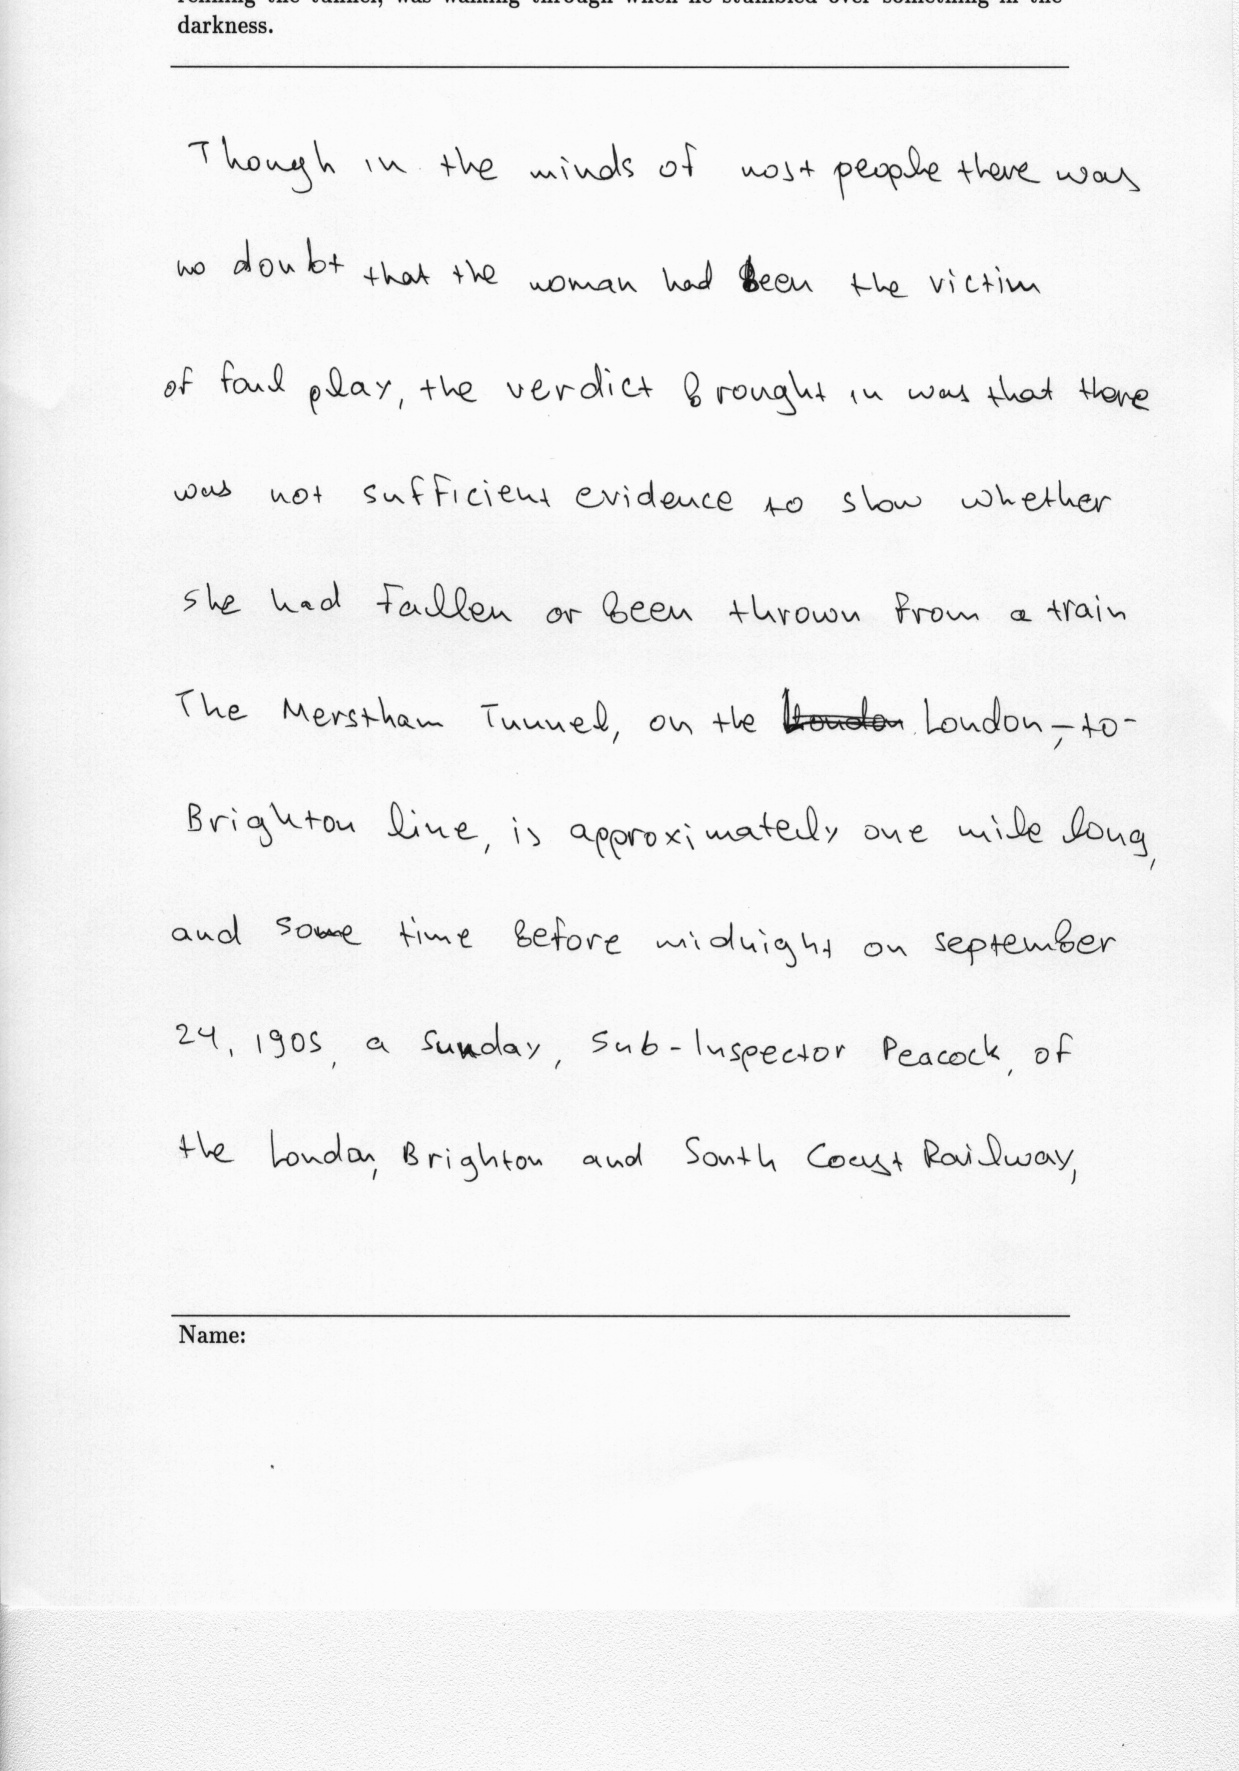 relining the tunnel, was walking through when he stumbled over something in the
darkness.
Though in the minds of most people there was
no doubt that the woman had been the victim
of foul play, the verdict brought in was that there
was not sufficient evidence to show whether
she had fallen or been thrown from a train
The Merstham Tunnel, on the London-to-
Brighton line, is approximately one mile long,
and some time before midnight on september
24, 1905, a Sunday, Sub-Inspector Peacock, of
the London, Brighton and South Coast Railway,
Name: